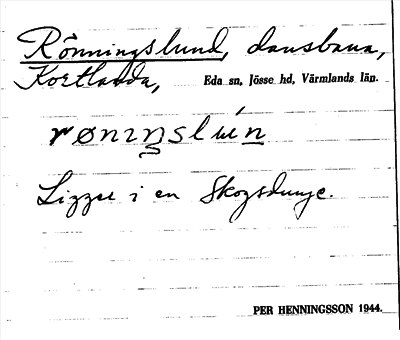 Rönningslund, dansbana,
Kortlanda, Eda sn, Jösse hd, Värmlands län.
rønıngsluń
Ligger i en skogsdunge.
PER HENNINGSSON 1944.